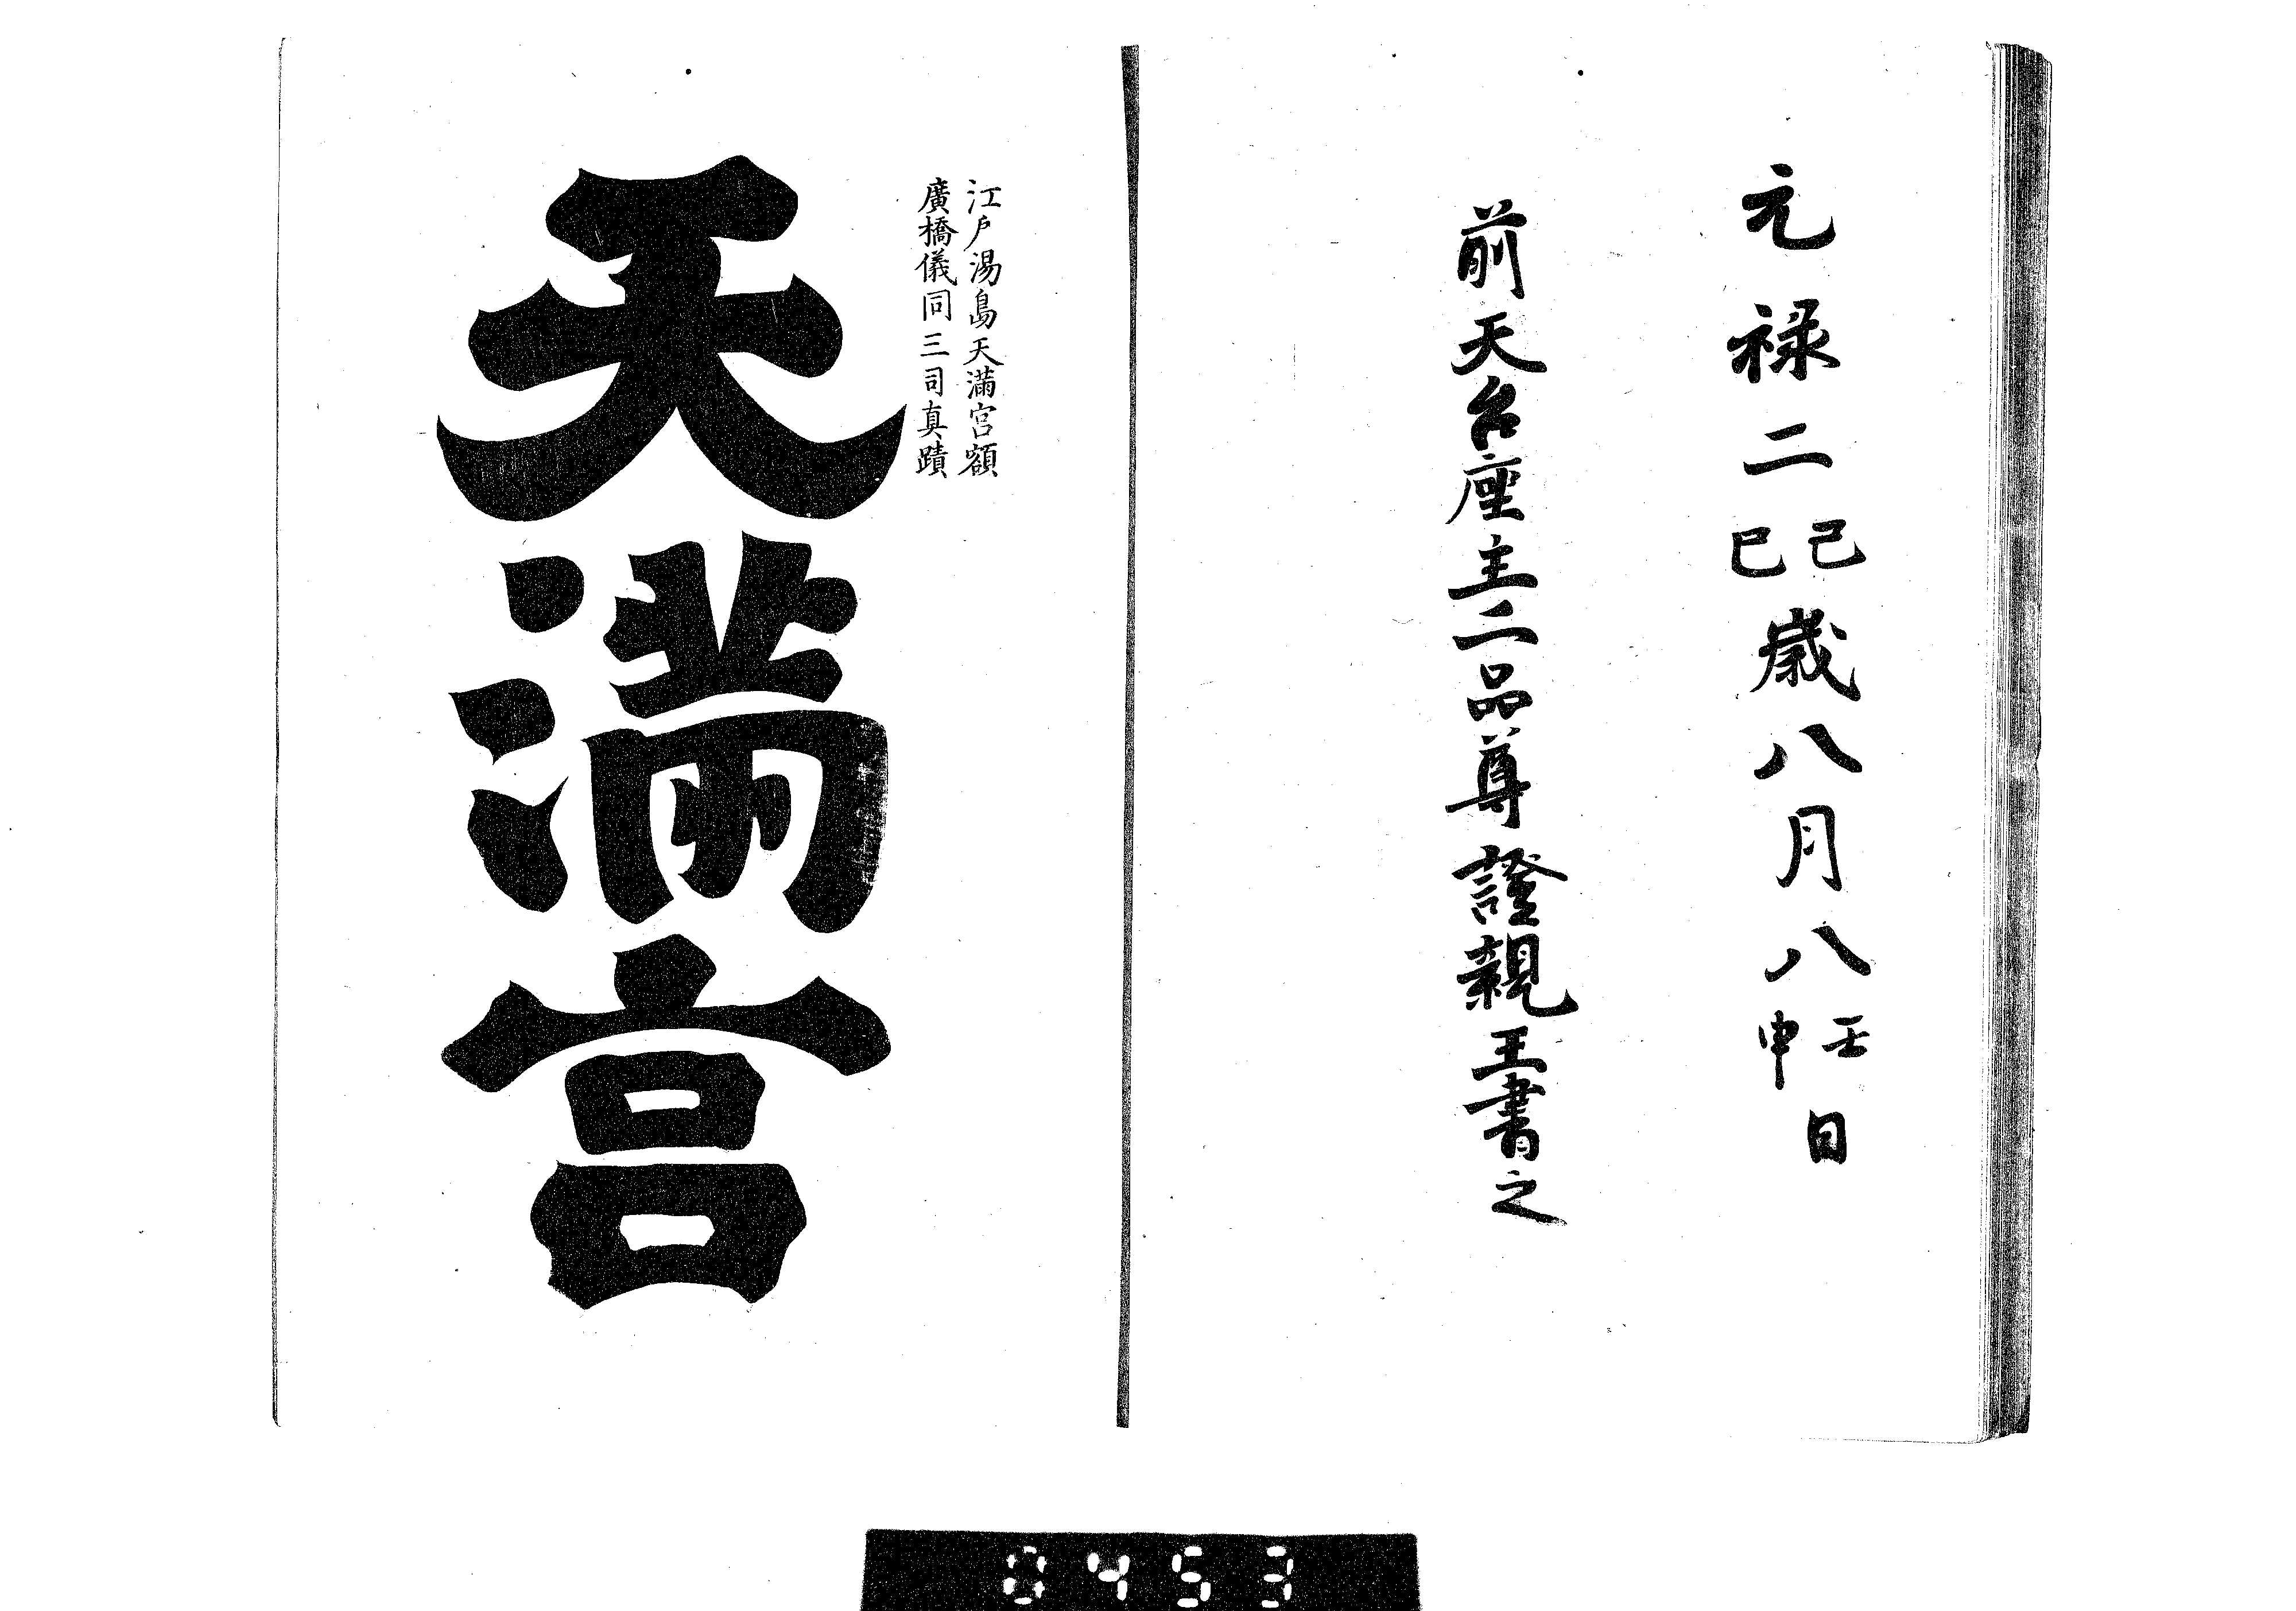 元禄二己巳歳八月八壬申日
前天台座主二品尊證親王書之
江戸湯島天満宮額
廣橋儀同三司真蹟
天満宮
0453